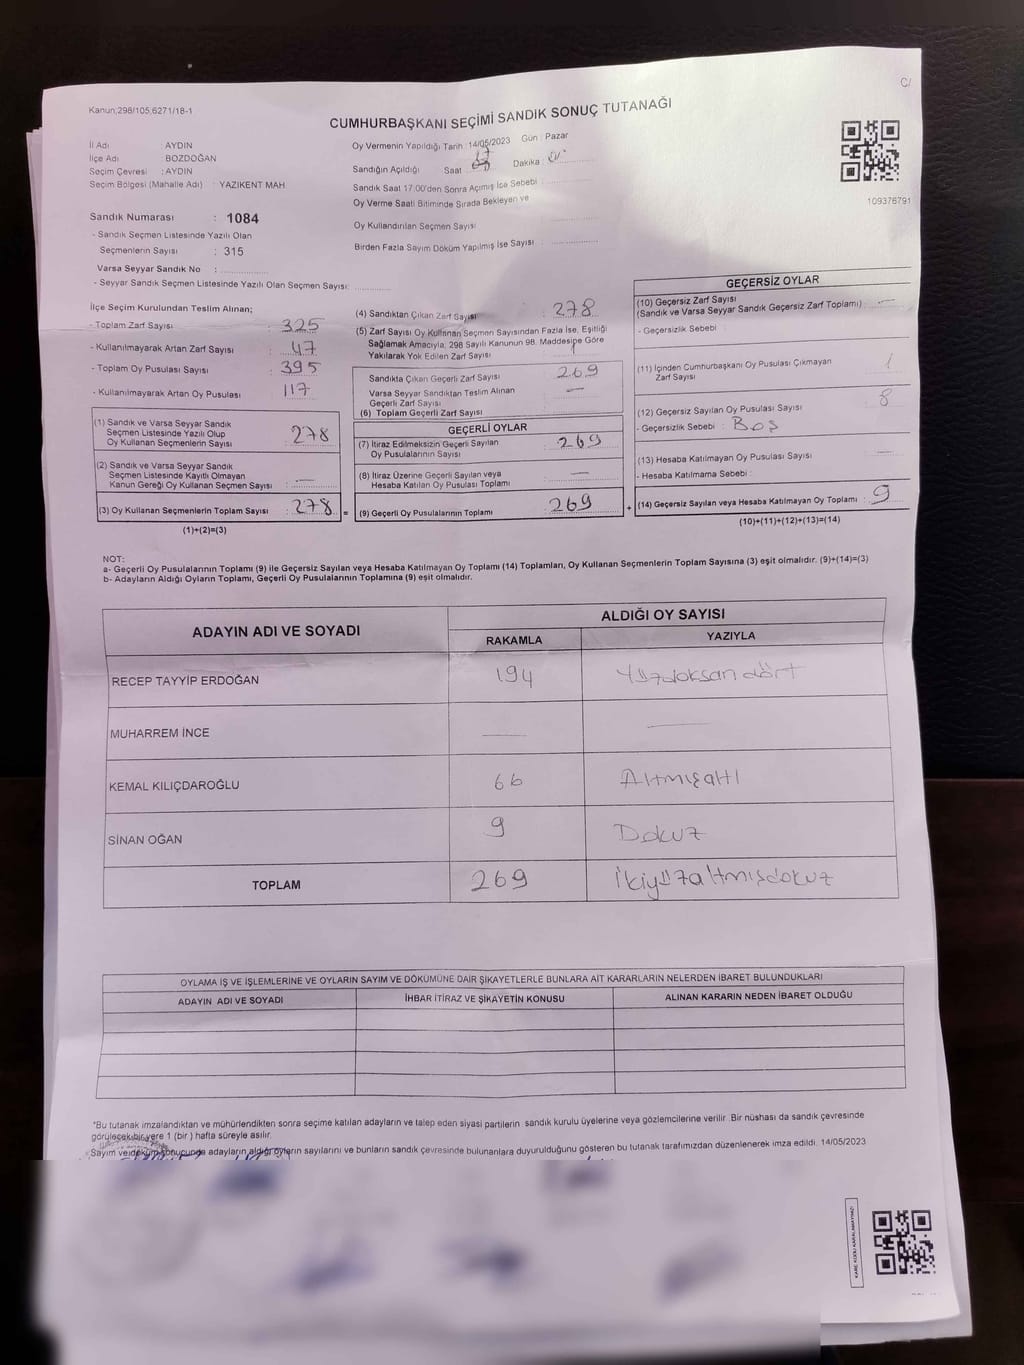 C/
Kanun;298/105;6271/18-1
CUMHURBAŞKANI SEÇİMİ SANDIK SONUÇ TUTANAĞI
İl Adı : AYDIN
İlçe Adı : BOZDOĞAN
Seçim Çevresi : AYDIN
Seçim Bölgesi (Mahalle Adı) : YAZIKENT MAH
Oy Vermenin Yapıldığı Tarih : 14/05/2023 Gün : Pazar
Sandığın Açıldığı Saat Dakika :
Sandık Saat 17:00'den Sonra Açılmış İse Sebebi
Oy Verme Saati Bitiminde Sırada Bekleyen ve
Oy Kullandırılan Seçmen Sayısı
Birden Fazla Sayım Döküm Yapılmış İse Sayısı
109376791
Sandık Numarası : 1084
- Sandık Seçmen Listesinde Yazılı Olan
Seçmenlerin Sayısı : 315
Varsa Seyyar Sandık No :
- Seyyar Sandık Seçmen Listesinde Yazılı Olan Seçmen Sayısı:
İlçe Seçim Kurulundan Teslim Alınan;
- Toplam Zarf Sayısı : 325
- Kullanılmayarak Artan Zarf Sayısı : 47
- Toplam Oy Pusulası Sayısı : 395
- Kullanılmayarak Artan Oy Pusulası : 117
(1) Sandık ve Varsa Seyyar Sandık
Seçmen Listesinde Yazılı Olup
Oy Kullanan Seçmenlerin Sayısı : 278
(2) Sandık ve Varsa Seyyar Sandık
Seçmen Listesinde Kayıtlı Olmayan
Kanun Gereği Oy Kullanan Seçmen Sayısı : —
(3) Oy Kullanan Seçmenlerin Toplam Sayısı : 278 =
(1)+(2)=(3)
(4) Sandıktan Çıkan Zarf Sayısı : 278
(5) Zarf Sayısı Oy Kullanan Seçmen Sayısından Fazla İse, Eşitliği
Sağlamak Amacıyla, 298 Sayılı Kanunun 98. Maddesine Göre
Yakılarak Yok Edilen Zarf Sayısı
Sandıkta Çıkan Geçerli Zarf Sayısı : 269
Varsa Seyyar Sandıktan Teslim Alınan
Geçerli Zarf Sayısı —
(6) Toplam Geçerli Zarf Sayısı
GEÇERLİ OYLAR
(7) İtiraz Edilmeksizin Geçerli Sayılan
Oy Pusulalarının Sayısı : 269
(8) İtiraz Üzerine Geçerli Sayılan veya
Hesaba Katılan Oy Pusulası Toplamı —
(9) Geçerli Oy Pusulalarının Toplamı : 269 +
GEÇERSİZ OYLAR
(10) Geçersiz Zarf Sayısı
(Sandık ve Varsa Seyyar Sandık Geçersiz Zarf Toplamı) : —
- Geçersizlik Sebebi :
(11) İçinden Cumhurbaşkanı Oy Pusulası Çıkmayan
Zarf Sayısı 1
(12) Geçersiz Sayılan Oy Pusulası Sayısı 8
- Geçersizlik Sebebi : Boş
(13) Hesaba Katılmayan Oy Pusulası Sayısı —
- Hesaba Katılmama Sebebi :
(14) Geçersiz Sayılan veya Hesaba Katılmayan Oy Toplamı : 9
(10)+(11)+(12)+(13)=(14)
NOT:
a- Geçerli Oy Pusulalarının Toplamı (9) ile Geçersiz Sayılan veya Hesaba Katılmayan Oy Toplamı (14) Toplamları, Oy Kullanan Seçmenlerin Toplam Sayısına (3) eşit olmalıdır. (9)+(14)=(3)
b- Adayların Aldığı Oyların Toplamı, Geçerli Oy Pusulalarının Toplamına (9) eşit olmalıdır.
ADAYIN ADI VE SOYADI
ALDIĞI OY SAYISI
RAKAMLA YAZIYLA
RECEP TAYYİP ERDOĞAN 194 Yüzdoksan dört
MUHARREM İNCE — —
KEMAL KILIÇDAROĞLU 66 Altmışaltı
SİNAN OĞAN 9 Dokuz
TOPLAM 269 ikiyüzaltmışdokuz
OYLAMA İŞ VE İŞLEMLERİNE VE OYLARIN SAYIM VE DÖKÜMÜNE DAİR ŞİKAYETLERLE BUNLARA AİT KARARLARIN NELERDEN İBARET BULUNDUKLARI
ADAYIN ADI VE SOYADI İHBAR İTİRAZ VE ŞİKAYETİN KONUSU ALINAN KARARIN NEDEN İBARET OLDUĞU
*Bu tutanak imzalandıktan ve mühürlendikten sonra seçime katılan adayların ve talep eden siyasi partilerin sandık kurulu üyelerine veya gözlemcilerine verilir. Bir nüshası da sandık çevresinde
görülecek bir yere 1 (bir ) hafta süreyle asılır.
Sayım ve döküm sonucunda adayların aldığı oyların sayılarını ve bunların sandık çevresinde bulunanlara duyurulduğunu gösteren bu tutanak tarafımızdan düzenlenerek imza edildi. 14/05/2023
KARE KODU KARALAMAYINIZ!